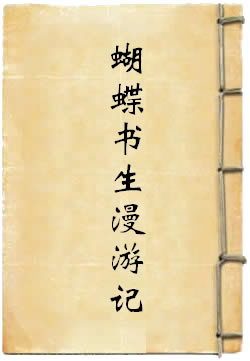 蝴蝶书生漫游记